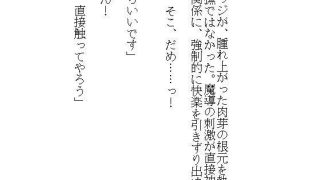 ジが、腫れ上がった肉芽の根元を
ではなかった。魔導の刺激が直接
関係に、強制的に快楽を引きずり出
そこ、だめ……っ！
らいいです」
ん！
直接触ってやろう」